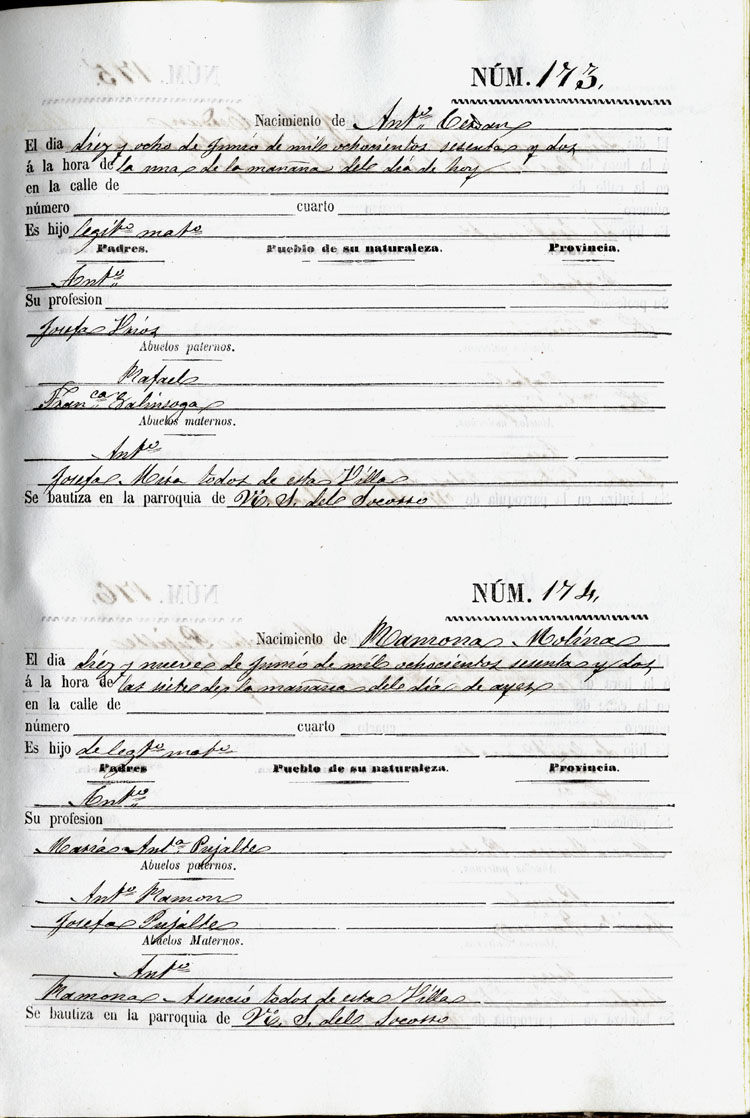 NÚM. 173.
Nacimiento de Ant.º Cerdan
El dia diez y ocho de Junio de mil ochocientos sesenta y dos
á la hora de la una de la mañana del dia de hoy
en la calle de
número cuarto
Es hijo legit.º mat.º
Padres. Pueblo de su naturaleza. Provincia.
Ant.º
Su profesion
Josefa
Abuelos paternos.
Rafael
Fran.ca Galinsoga
Abuelos maternos.
Ant.º
Josefa Mira todos de esta Villa
Se bautiza en la parroquia de N. S. del Socorro
NÚM. 174.
Nacimiento de Ramona Molina
El dia diez y nueve de Junio de mil ochocientos sesenta y dos
á la hora de las siete de la mañana del dia de ayer
en la calle de
número cuarto
Es hijo de legt.º mat.º
Padres Pueblo de su naturaleza. Provincia.
Ant.º
Su profesion
Maria Ant.ª Pujalte
Abuelos paternos.
Ant.º Ramon
Josefa Pujalte
Abuelos Maternos.
Ant.º
Ramona Asencio todos de esta Villa
Se bautiza en la parroquia de N. S. del Socorro